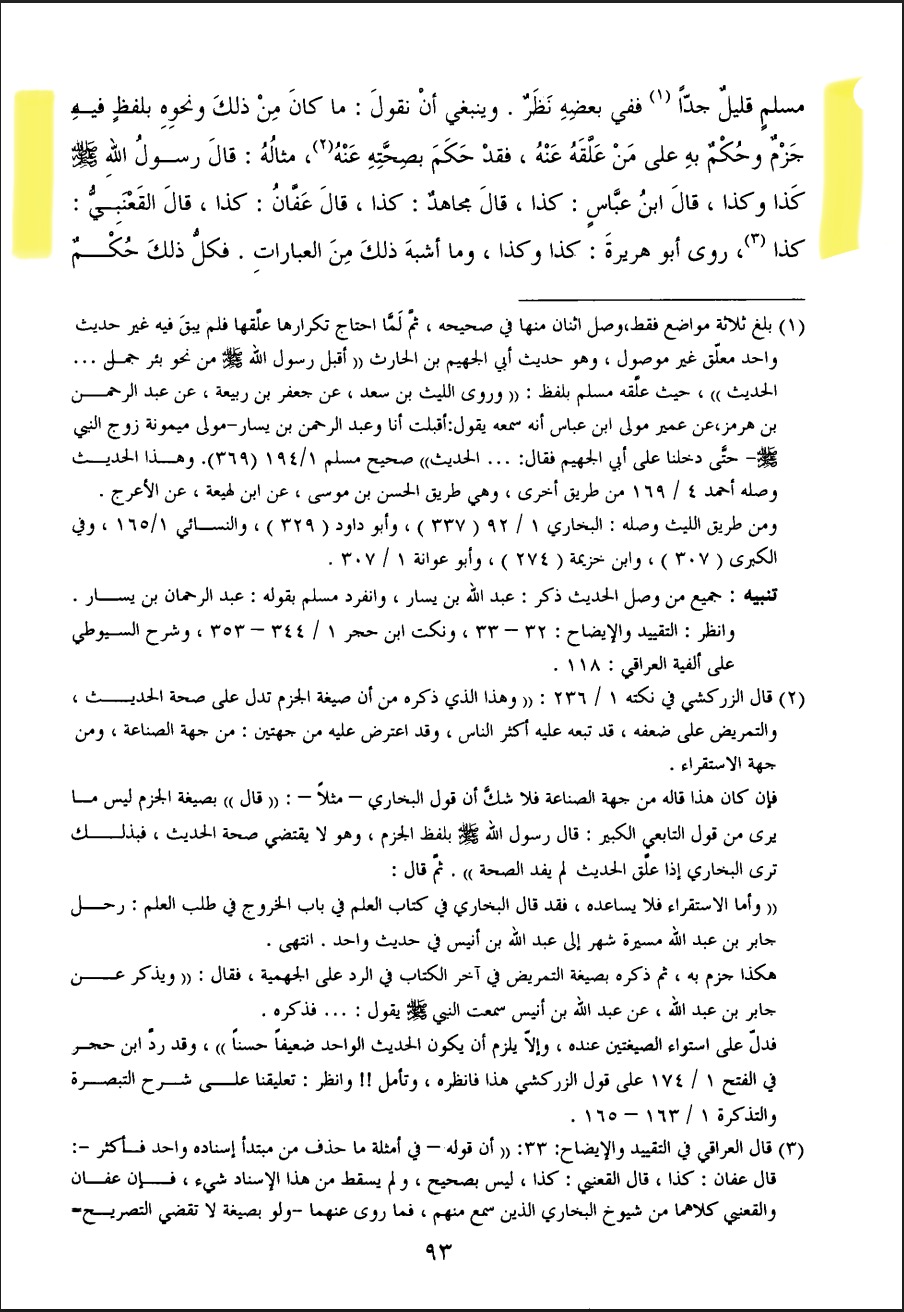 مسلمٍ قليلٌ جدّاً (١) ففي بعضِهِ نَظَرٌ . وينبغي أنْ نقولَ : ما كانَ مِنْ ذلكَ ونحوِهِ بلفظٍ فيـهِ
جَزْمٌ وحُكْمٌ بهِ على مَنْ عَلَّقَهُ عَنْهُ ، فقدْ حَكَمَ بصِحَّتِهِ عَنْهُ(٢)، مثالُهُ : قالَ رسـولُ اللهِ ﷺ
كَذا وكذا ، قالَ ابنُ عبَّاسٍ : كذا ، قالَ مجاهدٌ : كذا ، قالَ عَفَّانُ : كذا ، قالَ القَعْنَبـيُّ :
كذا (٣)، روى أبو هريرةَ : كذا وكذا ، وما أشبهَ ذلكَ مِنَ العباراتِ . فكلُّ ذلكَ حُكْـــمٌ
(١) بلغ ثلاثة مواضع فقط،وصل اثنان منها في صحيحه ، ثمَّ لَمَّا احتاج تكرارها علّقها فلم يبقَ فيه غير حديث
واحد معلّق غير موصول ، وهو حديث أبي الجهيم بن الحارث (( أقبل رسول الله ﷺ من نحو بئر جمـل ...
الحديث )) ، حيث علّقه مسلم بلفظ : (( وروى الليث بن سعد ، عن جعفر بن ربيعة ، عن عبد الرحمـــن
بن هرمز،عن عمير مولى ابن عباس أنه سمعه يقول:أقبلت أنا وعبد الرحمن بن يسار-مولى ميمونة زوج النبي
ﷺ- حتَّى دخلنا على أبي الجهيم فقال: ... الحديث)) صحيح مسلم ١٩٤/١ (٣٦٩). وهـــذا الحديـــث
وصله أحمد ٤ / ١٦٩ من طريق أخرى ، وهي طريق الحسن بن موسى ، عن ابن لهيعة ، عن الأعرج .
ومن طريق الليث وصله : البخاري ١ / ٩٢ ( ٣٣٧ ) ، وأبو داود ( ٣٢٩ ) ، والنسـائي ١٦٥/١ ، وفي
الكبرى ( ٣٠٧ ) ، وابن خزيمة ( ٢٧٤ ) ، وأبو عوانة ١ / ٣٠٧ .
تنبيه : جميع من وصل الحديث ذكر : عبد الله بن يسار ، وانفرد مسلم بقوله : عبد الرحمان بن يســار .
وانظر : التقييد والإيضاح : ٣٢ – ٣٣ ، ونكت ابن حجر ١ / ٣٤٤ – ٣٥٣ ، وشرح السـيوطي
على ألفية العراقي : ١١٨ .
(٢) قال الزركشي في نكته ١ / ٢٣٦ : (( وهذا الذي ذكره من أن صيغة الجزم تدل على صحة الحديـــث ،
والتمريض على ضعفه ، قد تبعه عليه أكثر الناس ، وقد اعترض عليه من جهتين : من جهة الصناعة ، ومن
جهة الاستقراء .
فإن كان هذا قاله من جهة الصناعة فلا شكَّ أن قول البخاري – مثلاً – : (( قال )) بصيغة الجزم ليس مــا
يرى من قول التابعي الكبير : قال رسول الله ﷺ بلفظ الجزم ، وهو لا يقتضي صحة الحديث ، فبذلـــك
ترى البخاري إذا علّق الحديث لم يفد الصحة )) . ثمَّ قال :
(( وأما الاستقراء فلا يساعده ، فقد قال البخاري في كتاب العلم في باب الخروج في طلب العلم : رحــل
جابر بن عبد الله مسيرة شهر إلى عبد الله بن أنيس في حديث واحد . انتهى .
هكذا جزم به ، ثم ذكره بصيغة التمريض في آخر الكتاب في الرد على الجهمية ، فقال : (( ويذكر عـــن
جابر بن عبد الله ، عن عبد الله بن أنيس سمعت النبي ﷺ يقول : ... فذكره .
فدلّ على استواء الصيغتين عنده ، وإلاّ يلزم أن يكون الحديث الواحد ضعيفاً حسناً )) ، وقد ردَّ ابن حجـر
في الفتح ١ / ١٧٤ على قول الزركشي هذا فانظره ، وتأمل !! وانظر : تعليقنا علـــى شــرح التبصـرة
والتذكرة ١ / ١٦٣ – ١٦٥ .
(٣) قال العراقي في التقييد والإيضاح: ٣٣: (( أن قوله – في أمثلة ما حذف من مبتدأ إسناده واحد فـأكثر -:
قال عفان : كذا ، قال القعنبي : كذا ، ليس بصحيح ، ولم يسقط من هذا الإسناد شيء ، فـــإن عفــان
والقعنبي كلاهما من شيوخ البخاري الذين سمع منهم ، فما روى عنهما -ولو بصيغة لا تقضي التصريـــح-
٩٣